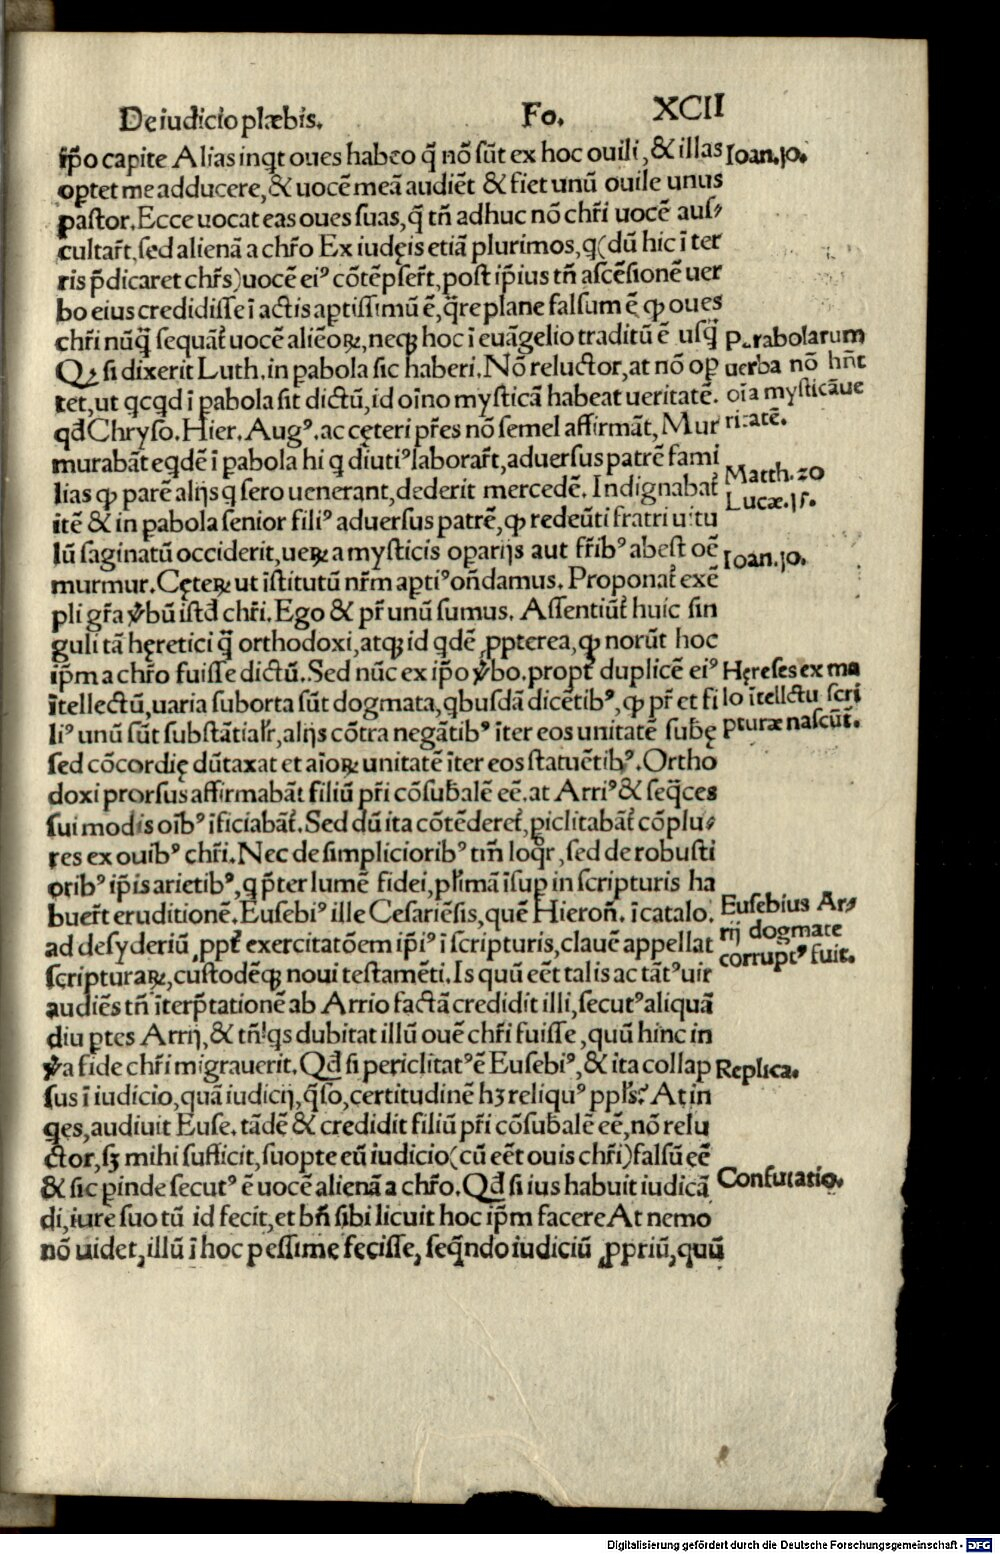 De iudicio plæbis. Fo. XCII
ip̄o capite Alias inqt oues habeo q̄ nō sūt ex hoc ouili, & illas
optet me adducere, & uocē meā audiēt & fiet unū ouile unus
pastor. Ecce uocat eas oues suas, q̄ tñ adhuc nō chr̄i uocē aus⸗
cultar̄t, sed alienā a chr̄o Ex iudęis etiā plurimos, q (dū hic ī ter
ris p̄dicaret chr̄s) uocē eiꝰ cōtēpser̄t, post ip̄ius tñ ascēsionē uer
bo eius credidisse ī actis aptissimū ē, q̄re plane falsum ē ꝙ oues
chr̄i nūq̄ sequāt̄ uocē aliēoꝝ, neqꝫ hoc ī euāgelio traditū ē usq̄
Qꝫ si dixerit Luth. in pabola sic haberi. Nō reluctor, at nō oꝑ
tet, ut qcqd ī ꝑabola sit dictū, id oīno mysticā habeat ueritatē.
qđ Chryso. Hier. Augꝰ. ac cęteri pr̄es nō semel affirmāt, Mur
murabāt eqdē ī ꝑabola hi q diutiꝰ laborar̄t, aduersus patrē fami
lias ꝙ parē alijs q sero uenerant, dederit mercedē. Indignabat̄
itē & in pabola senior filiꝰ aduersus patrē, ꝙ redeūti fratri uitu
lū saginatū occiderit, ueꝝ a mysticis operarijs aut fr̄ibꝰ abest oē
murmur. Cęteꝝ ut īstitutū nr̄m aptiꝰ oñdamus. Proponat̄ exē
pli gr̄a ỽbū istđ chr̄i. Ego & pr̄ unū sumus. Assentiūt̄ huic sin
guli tā hęretici q̄ orthodoxi, atqꝫ id qdē ꝓpterea, ꝙ norūt hoc
ip̄m a chr̄o fuisse dictū. Sed nūc ex ip̄o ỽbo. propt̄ duplicē eiꝰ
ītellectū, uaria suborta sūt dogmata, qbusdā dicētibꝰ, ꝙ pr̄ et fi
liꝰ unū sūt substātialr̄, alijs cōtra negātibꝰ īter eos unitatē subę
sed cōcordię dūtaxat et aīoꝝ unitatē īter eos statuētibꝰ. Ortho
doxi prorsus affirmabāt filiū pr̄i cōsub̄alē eē. at Arriꝰ & seq̄ces
sui modis oībꝰ īficiabāt̄. Sed dū ita cōtēderet̄, ꝑiclitabāt̄ cōplu⸗
res ex ouibꝰ chr̄i. Nec de simplicioribꝰ tm̄ loqr̄, sed de robusti
oribꝰ ip̄is arietibꝰ, q p̄ter lumē fidei, plr̄imā īsuꝑ in scripturis ha
buer̄t eruditionē. Eusebiꝰ ille Cesariēsis, quē Hieroñ. ī catalo.
ad desyderiū ꝓpt̄ exercitatōem ip̄iꝰ ī scripturis, clauē appellat
scripturaꝝ, custodēqꝫ noui testamēti. Is quū eēt talis ac tātꝰ uir
audiēs tñ īterp̄tationē ab Arrio factā credidit illi, secutꝰ aliquā
diu ꝑtes Arrij, & tñ! qs dubitat illū ouē chr̄i fuisse, quū hinc in
ỽa fide chr̄i migrauerit. Qđ si periclitatꝰ ē Eusebiꝰ, & ita collap
sus ī iudicio, quā iudicij, q̄so, certitudinē hꝫ reliquꝰ ppl̄s? At in
qes, audiuit Euse. tādē & credidit filiū pr̄i cōsub̄alē eē, nō relu
ctor, sꝫ mihi sufficit, suopte eū iudicio (cū eēt ouis chr̄i) falsū eē
& sic ꝑinde secutꝰ ē uocē alienā a chr̄o. Qđ si ius habuit iudicā
di, iure suo tū id fecit, et bñ sibi licuit hoc ip̄m facere At nemo
nō uidet, illū ī hoc pessime fecisse, seq̄ndo iudiciū ꝓpriū, quū
Ioan. jo.
Parabolarum
uerba nō hñt
oīa mysticā ue
ritatē.
Matth. 20
Lucæ. js.
Ioan. jo.
Hęreses ex ma
lo ītellctu scri
pturæ nascūt̄.
Eusebius Ar⸗
rij dogmate
corruptꝰ fuit.
Replica.
Confutatio.
Digitalisierung gefördert durch die Deutsche Forschungsgemeinschaft - DFG